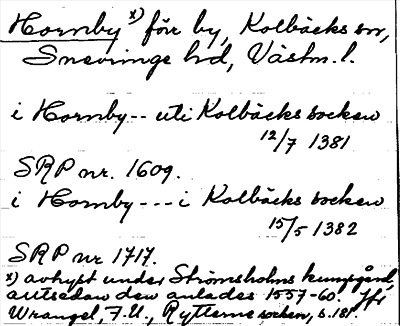 Hornby x) förr by, Kolbäcks sn,
Snevringe hd, Västm. l.
i Hornby-- uti Kolbäcks socken
12/7 1381
SRP nr. 1609.
i Hornby --- i Kolbäcks socken
15/5 1382
SRP nr 1717.
x) avhyst under Strömsholms kungsgård,
allt sedan den anlades 1557-60. Jfr
Wrangel, F.U., Rytterne socken, s. 181.